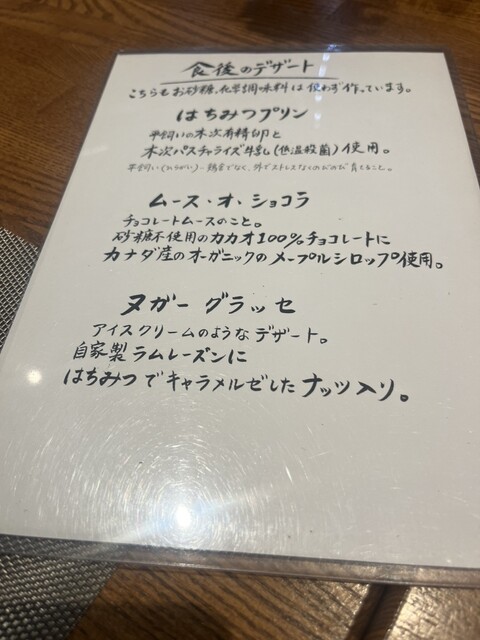 食後のデザート
こちらもお砂糖、化学調味料は使わず作っています。
はちみつプリン
平飼いの木次有精卵と
木次パスチャライズ牛乳(低温殺菌)使用。
平飼い(ひらがい)…鶏舎でなく、外でストレスなくのびのび育てること。
ムース・オ・ショコラ
チョコレートムースのこと。
砂糖不使用のカカオ100%チョコレートに
カナダ産のオーガニックのメープルシロップ使用。
ヌガー グラッセ
アイスクリームのようなデザート。
自家製ラムレーズンに
はちみつでキャラメルゼしたナッツ入り。